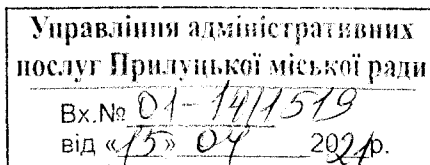 Управління адміністративних
послуг Прилуцької міської ради
Вх.№ 01-14/1519
від «15» 04 2021р.